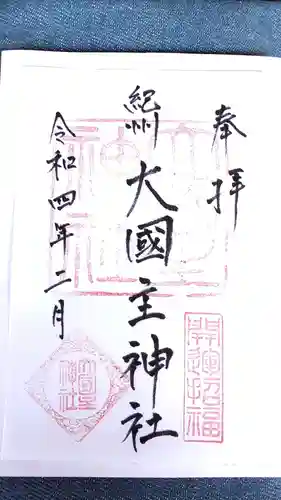 奉拝
紀州
大國主神社
令和四年二月
開運招福